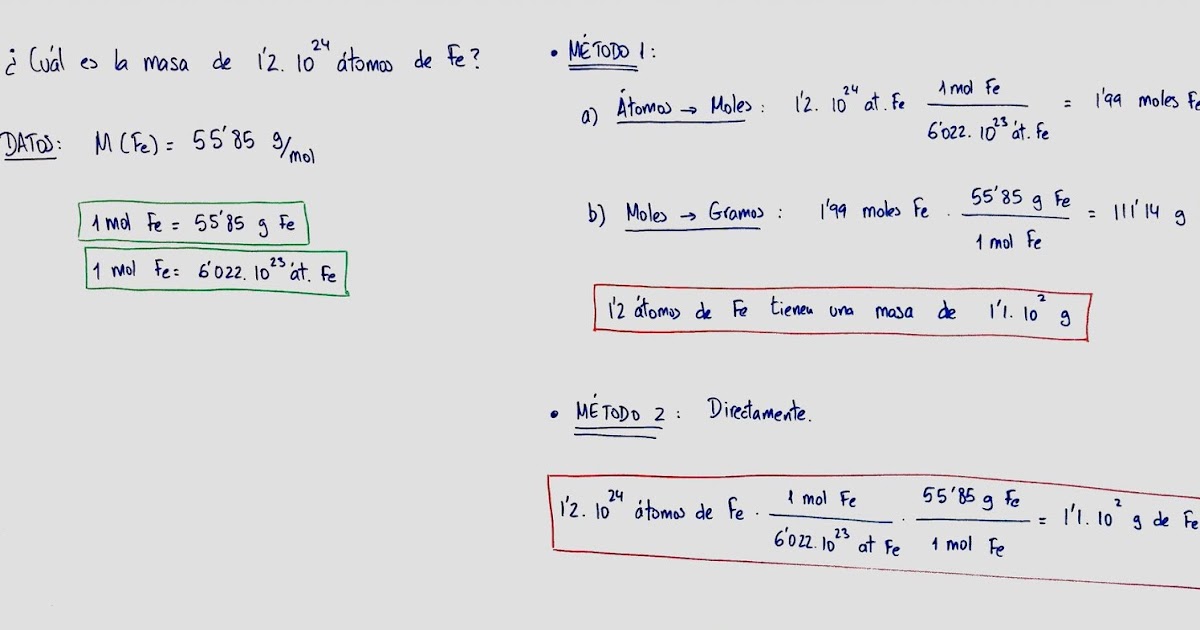 ¿Cuál es la masa de 1'2. 10²⁴ átomos de Fe?
DATOS: M (Fe) = 55'85 g/mol
1 mol Fe = 55'85 g Fe
1 mol Fe = 6'022. 10²³ át. Fe
• MÉTODO 1:
a) Átomos → Moles: 1'2. 10²⁴ at. Fe
1 mol Fe
6'022. 10²³ át. Fe
= 1'99 moles Fe
b) Moles → Gramos: 1'99 moles Fe ·
55'85 g Fe
1 mol Fe
= 111'14 g
1'2 átomos de Fe tienen una masa de 1'1. 10² g
• MÉTODO 2: Directamente.
1'2. 10²⁴ átomos de Fe ·
1 mol Fe
6'022. 10²³ at Fe
·
55'85 g Fe
1 mol Fe
= 1'1. 10² g de Fe